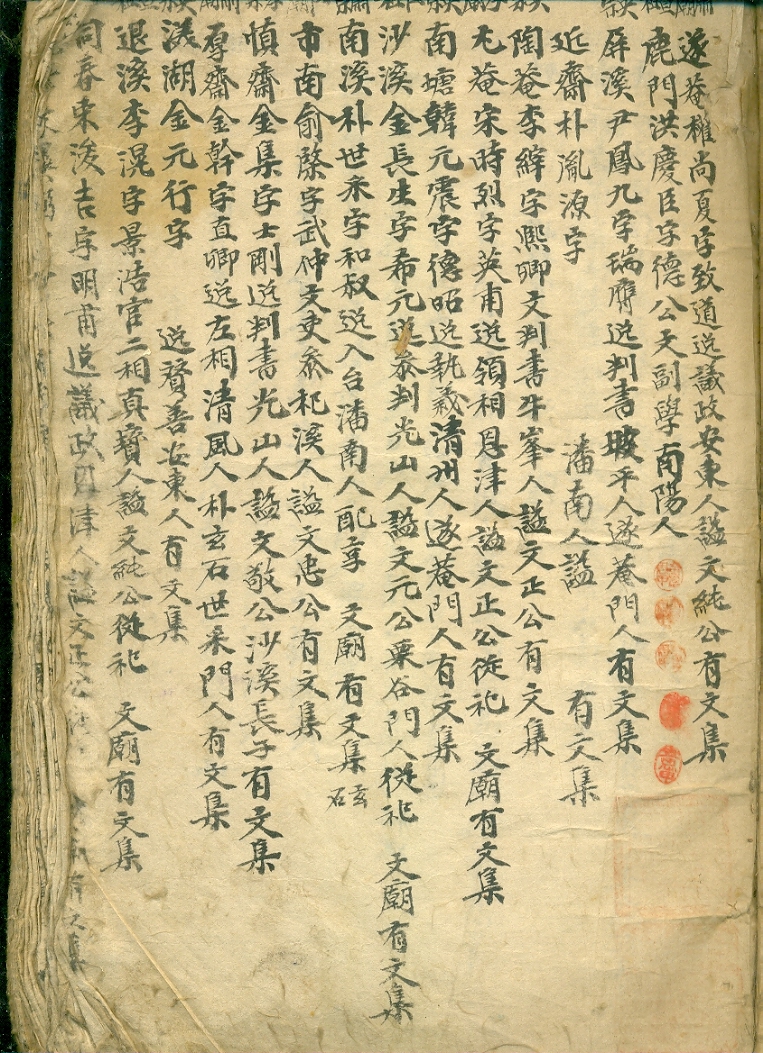 遂菴權尚夏字致道逸議政安東人謚文純公有文集
鹿門洪慶臣字德公文副學南陽人
屏溪尹鳳九字瑞膺逸判書坡平人遂菴門人有文集
近齋朴胤源字 潘南人謚 有文集
陶菴李縡字熙卿文判書牛峯人謚文正公有文集
尤菴宋時烈字英甫逸領相恩津人謚文正公從祀 文廟有文集
南塘韓元震字德昭逸執義清州人遂菴門人有文集
沙溪金長生字希元逸叅判光山人謚文元公栗谷門人從祀 文廟有文集
南溪朴世采字和叔逸入台潘南人配享 文廟有文集 玄石
市南俞棨字武仲文吏叅杞溪人謚文忠公有文集
慎齋金集字士剛逸判書光山人謚文敬公沙溪長子有文集
厚齋金榦字直卿逸左相清風人朴玄石世采門人有文集
渼湖金元行字 逸贊善安東人有文集
退溪李滉字景浩官二相真寶人謚文純公從祀 文廟有文集
同春宋浚吉字明甫逸議政恩津人謚文正公 有文集